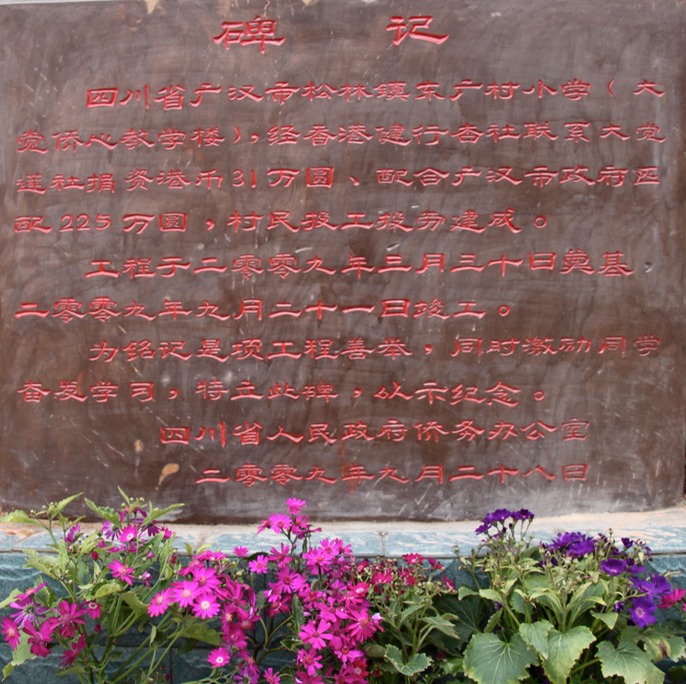 碑 记
四川省广汉市松林镇东广村小学（大
觉侨心教学楼），经香港健行杏社联系大觉
莲社捐资港币31万圆、配合广汉市政府匹
配225万圆，村民投工投劳建成。
工程于二零零九年三月三十日奠基，
二零零九年九月二十一日竣工。
为铭记是项工程善举，同时激励同学
奋发学习，特立此碑，以示纪念。
四川省人民政府侨务办公室
二零零九年九月二十八日